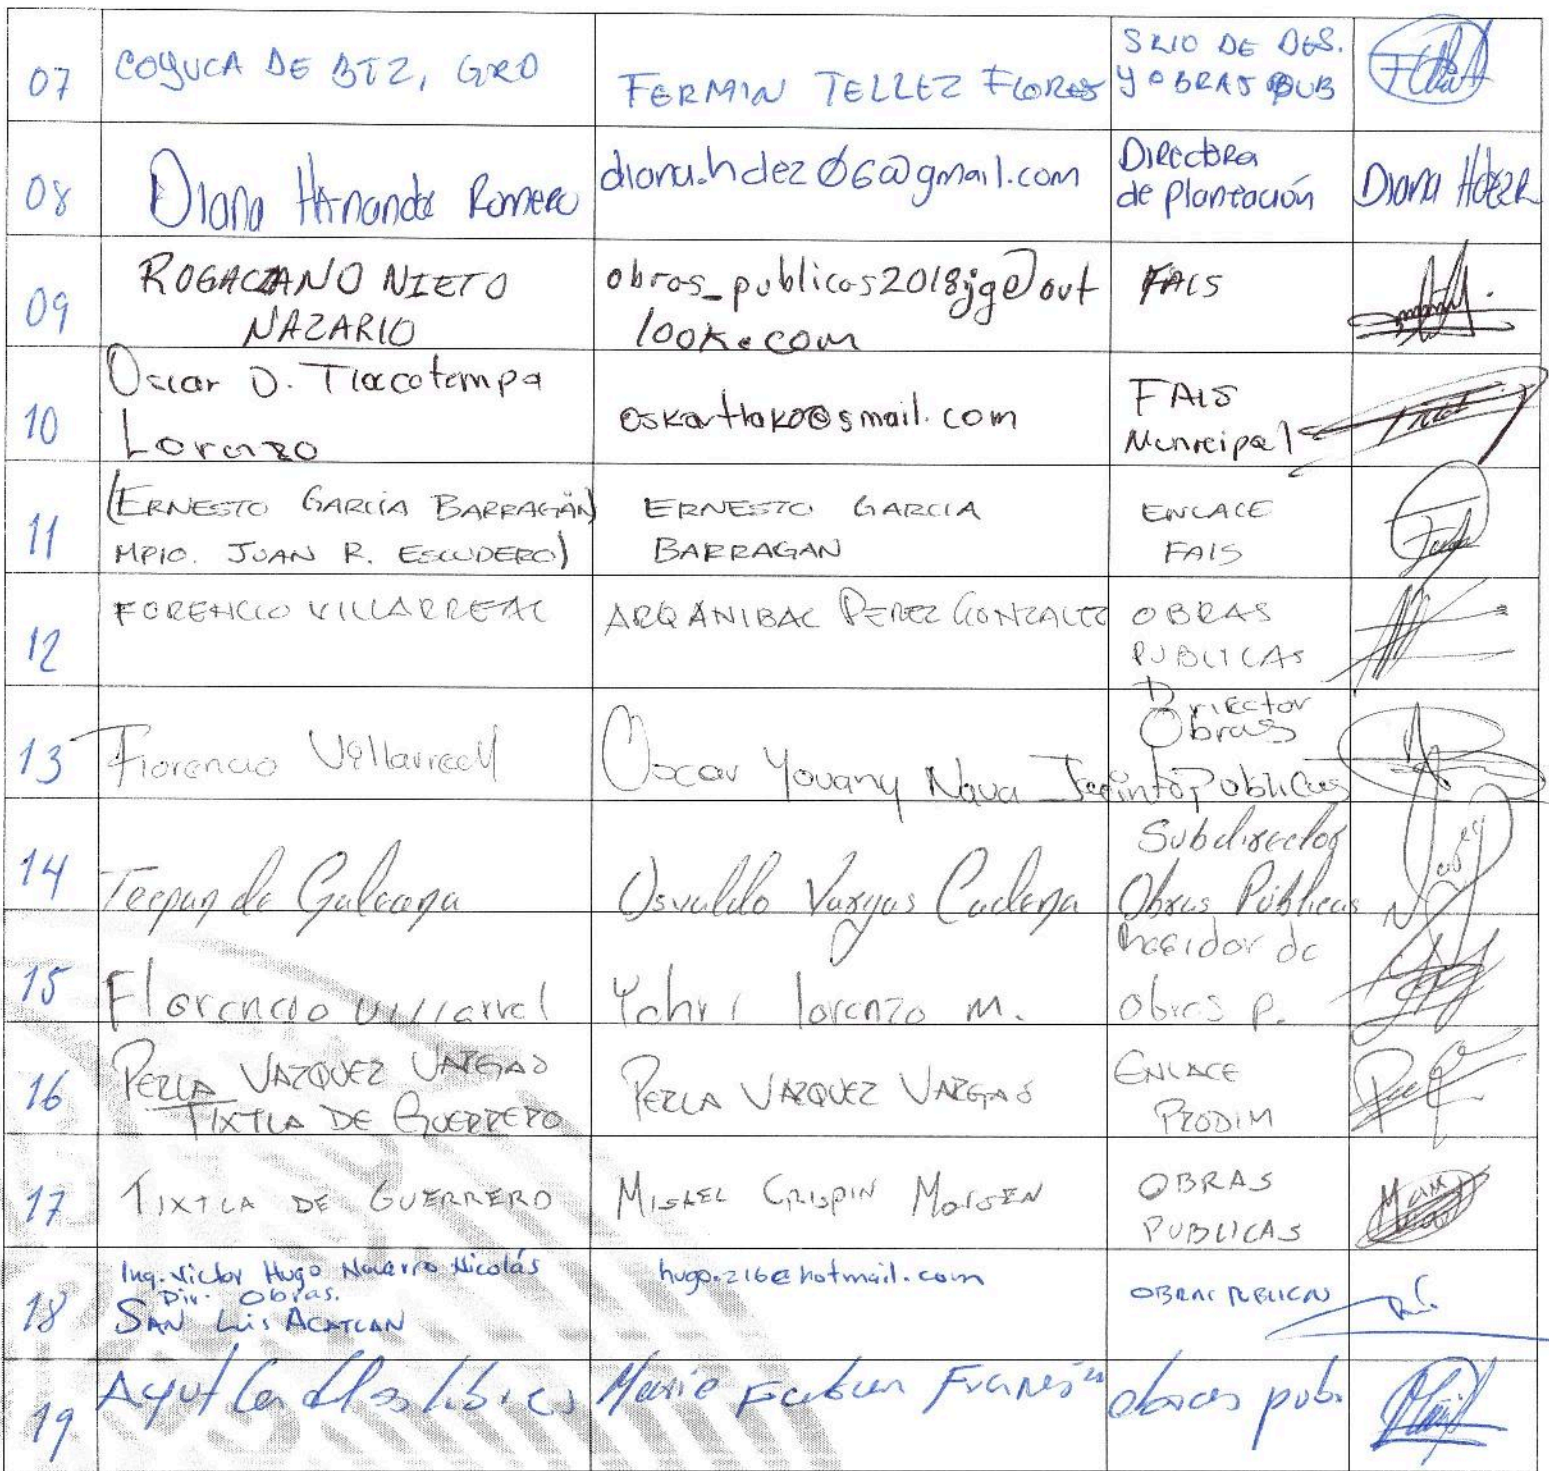 07 COYUCA DE BTZ, GRO FERMIN TELLEZ FLORES SRIO DE DES.
Y OBRAS PUB
08 Diana Hernandz Romero diana.hdez06@gmail.com Directora
de planeación Diana Hdez R
09 ROGACIANO NIETO
NAZARIO obras_publicas2018jg@out
look.com FAIS
10 Oscar D. Tlacotempa
Lorenzo oskartlako@gmail.com FAIS
Municipal
11 (ERNESTO GARCÍA BARRAGÁN
MPIO. JUAN R. ESCUDERO) ERNESTO GARCIA
BARRAGAN ENLACE
FAIS
12 FORENCIO VILLARREAL ARQ ANIBAL PEREZ GONZALEZ OBRAS
PUBLICAS
13 Florencio Villarreal Oscar Yovany Nava Jacinto Director
Obras
Publicas
14 Tecpan de Galeana Osvaldo Vargas Cadena Subdirector
Obras Públicas
15 Florencio Villarrel Yahri lorenzo M. Regidor de
obras P.
16 PERLA VAZQUEZ VARGAS
TIXTLA DE GUERRERO PERLA VAZQUEZ VARGAS ENLACE
PRODIM
17 TIXTLA DE GUERRERO MISAEL CRISPIN OBRAS
PUBLICAS
18 Ing. Victor Hugo Navarro Nicolás
Dir. Obras.
SAN Luis ACATLAN hugo.216@hotmail.com OBRAS PUBLICAS
19 Ayutla de los libres Mario obras pub.